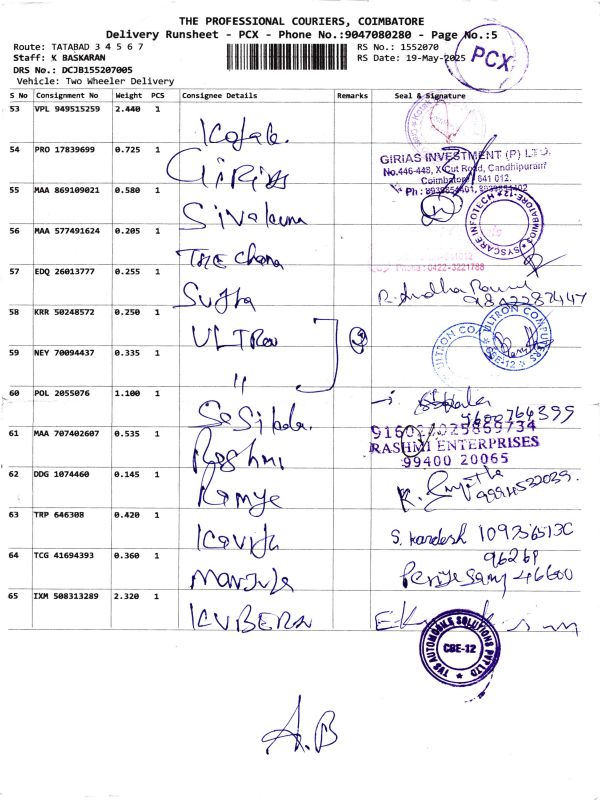 THE PROFESSIONAL COURIERS, COIMBATORE
Delivery Runsheet - PCX - Phone No.:9047080280 - Page No.:5
Route: TATABAD 3 4 5 6 7
RS No.: 1552070
Staff: K BASKARAN
RS Date: 19-May-2025
PCX
DRS No.: DCJB155207005
Vehicle: Two Wheeler Delivery
S No Consignment No Weight PCS Consignee Details Remarks Seal & Signature
53 VPL 949515259 2.440 1
54 PRO 17839699 0.725 1 GIRIAS
GIRIAS INVESTMENT (P) LTD.
No.446-448, X Cut Road, Gandhipuram
Coimbatore 641 012.
55 MAA 869109021 0.580 1
SYSCARE INFOTECH COIMBATORE-12
56 MAA 577491624 0.205 1
Phone: 0422-3221788
57 EDQ 26013777 0.255 1 Sudha
58 KRR 50248572 0.250 1 ULTRON
ULTRON COMPUTERS CBE-12
59 NEY 70094437 0.335 1 "
60 POL 2055076 1.100 1
61 MAA 707402607 0.535 1 Rashmi
RASHMI ENTERPRISES
99400 20065
62 DDG 1074460 0.145 1 Ramya
63 TRP 646308 0.420 1 Kavitha
64 TCG 41694393 0.360 1 Manjula
65 IXM 508313289 2.320 1 KUBERA
TVS AUTOMOBILE SOLUTIONS PVT LTD
CBE-12
A.B